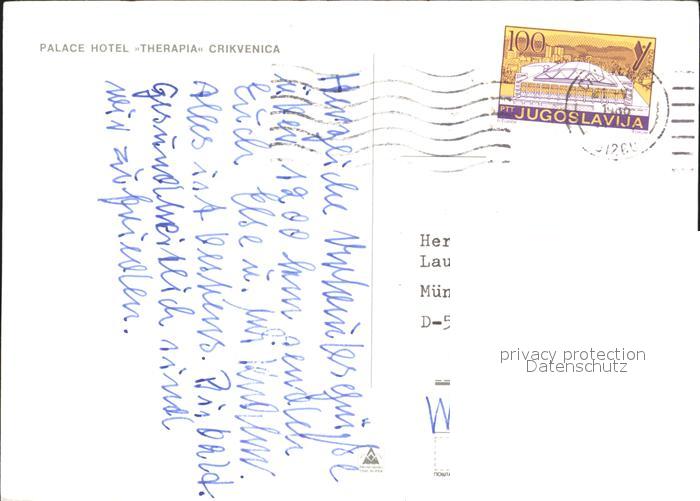 PALACE HOTEL »THERAPIA« CRIKVENICA
100
PTT JUGOSLAVIJA
Herzliche Urlaubsgrüße
über 1200 km sendet
Euch Else u.
Alles ist bestens. Bis bald.
Gesundheitlich sind
wir zufrieden.
Her
Lau
Mün
D-5
W
privacy protection
Datenschutz